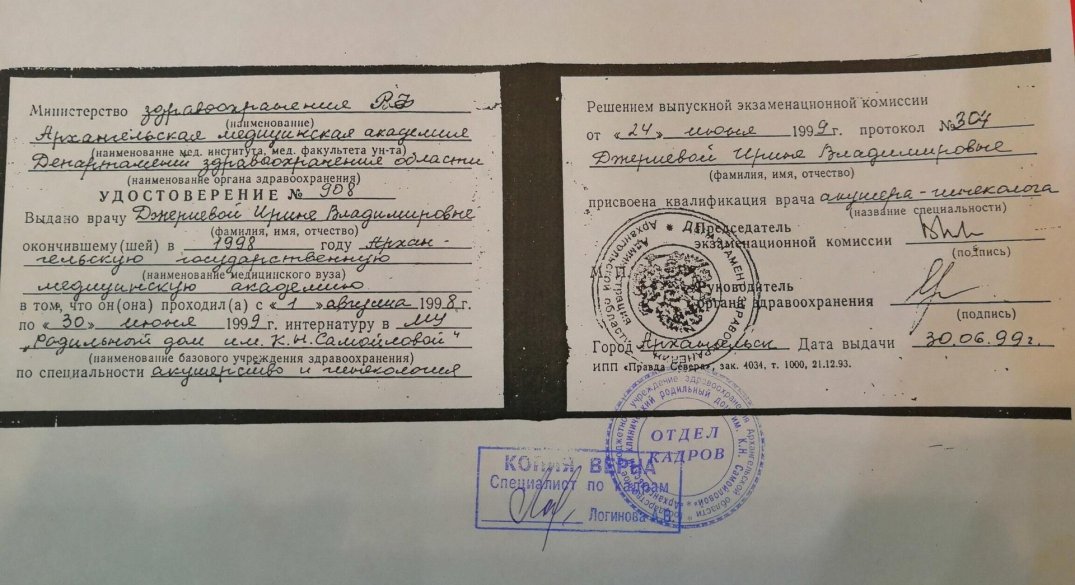 Министерство здравоохранения РФ
(наименование)
Архангельская медицинская академия
(наименование мед. института, мед. факультета ун-та)
Департамент здравоохранения области
(наименование органа здравоохранения)
УДОСТОВЕРЕНИЕ № 908
Выдано врачу Джериевой Ирине Владимировне
(фамилия, имя, отчество)
окончившему (шей) в 1998 году Архан-
гельскую государственную
(наименование медицинского вуза)
медицинскую академию
в том, что он(она) проходил(а) с «1» августа 1998 г.
по «30» июня 1999 г. интернатуру в МУ
„Родильный дом им. К.Н. Самойловой"
(наименование базового учреждения здравоохранения)
по специальности акушерство и гинекология
Решением выпускной экзаменационной комиссии
от «24» июня 1999 г. протокол № 304
Джериевой Ирине Владимировне
(фамилия, имя, отчество)
присвоена квалификация врача акушера-гинеколога
(название специальности)
Председатель
экзаменационной комиссии
(подпись)
М. П.
Руководитель
органа здравоохранения
(подпись)
Город Архангельск Дата выдачи 30.06.99г.
ИПП «Правда Севера», зак. 4034, т. 1000, 21.12.93.
Администрация Архангельской области
ОТДЕЛ
КАДРОВ
учреждение здравоохранения Архангельской области
клинический родильный дом им. К.Н. Самойловой
КОПИЯ ВЕРНА
Специалист по кадрам
Логинова А.В.